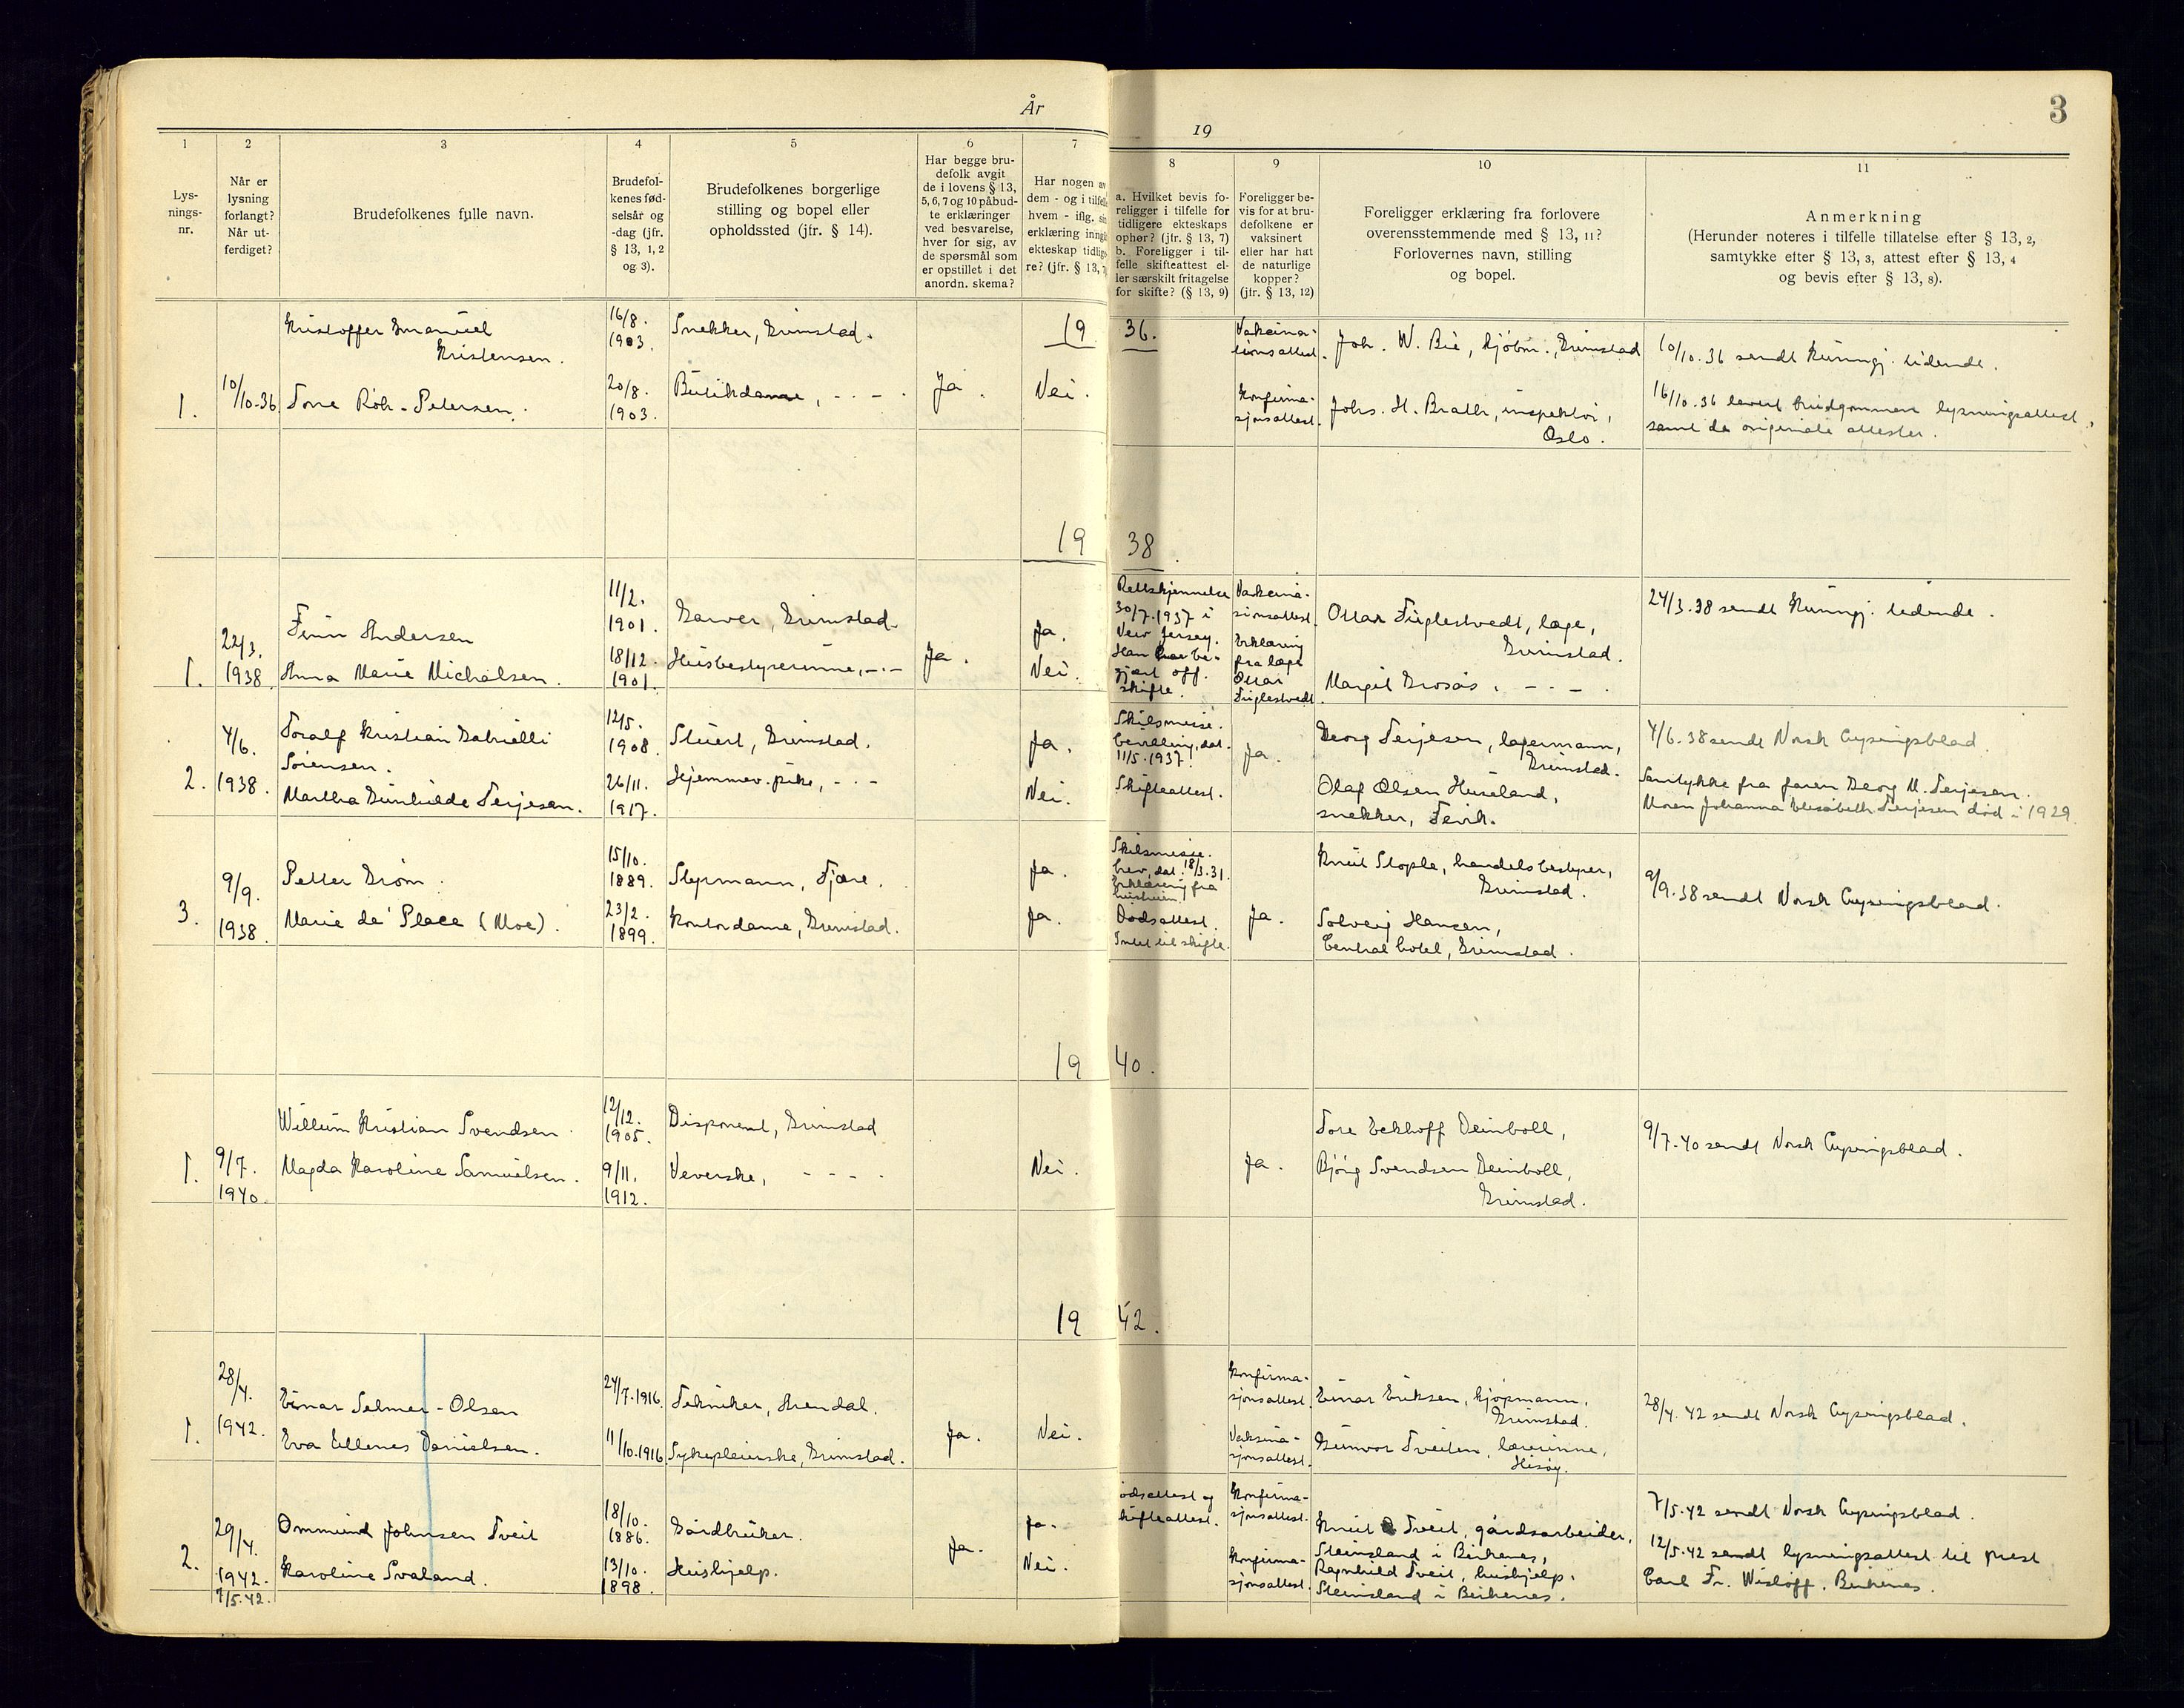 År
19
3
1
2
3
4
5
6
7
8
9
10
11
Lys-
nings-
nr.
Når er
lysning
forlangt?
Når ut-
ferdiget?
Brudefolkenes fulle navn.
Brudefol-
kenes fød-
selsår og
-dag (jfr.
§ 13, 1, 2
og 3).
Brudefolkenes borgerlige
stilling og bopel eller
opholdssted (jfr. § 14).
Har begge bru-
defolk avgit
de i lovens § 13,
5, 6, 7 og 10 påbud-
te erklæringer
ved besvarelse,
hver for sig, av
de spørsmål som
er opstillet i det
anordn. skema?
Har nogen av
dem - og i tilfelle
hvem - iflg. sin
erklæring inngå
ekteskap tidlige
re? (jfr. § 13, 7
a. Hvilket bevis fo-
religger i tilfelle for
tidligere ekteskaps
ophør? (jfr. § 13, 7)
b. Foreligger i til-
felle skifteattest el-
ler særskilt fritagelse
for skifte? (§ 13, 9)
Foreligger be-
vis for at bru-
defolkene er
vaksinert
eller har hat
de naturlige
kopper?
(jfr. § 13, 12)
Foreligger erklæring fra forlovere
overensstemmende med § 13, 11?
Forlovernes navn, stilling
og bopel.
Anmerkning
(Herunder noteres i tilfelle tillatelse efter § 13, 2,
samtykke efter § 13, 3, attest efter § 13, 4
og bevis efter § 13, 8).
19 36.
1.
10/10-36
Kristoffer Emanuel
Kristensen.
Tore Röh-Petersen.
16/8.
1903.
20/8.
1903.
Snekker, Grimstad.
Butikdame, - - - .
Ja.
Nei.
Vaksina-
sionsattest.
Konfirma-
sjonsattest.
Joh. W. Bie, kjöbm., Grimstad
Johs. H. Brath, inspektör,
Oslo.
10/10.36 sendt Kunngj. tidende.
16/10.36 levert brudgommen lysningsattest,
samt de originale attester.
19 38.
1.
22/3.
1938.
Finn Andersen
Anna Marie Michalsen.
11/2.
1901.
18/12.
1901.
Garver, Grimstad.
Husbestyrerinne, -.-
Ja.
Ja.
Nei.
Rettskjennelse
30/7.1937 i
New Jersey.
Han har be-
gjært off.
skifte.
Vaksina-
sionsattest.
Erklæring
fra læge
Ottar
Fuglestvedt.
Ottar Fuglestvedt, læge,
Grimstad.
Margit Grosås, - - - .
24/3.38 sendt Kunngj. tidende.
2.
4/6.
1938.
Toralf Kristian Gabrielli
Sörensen.
Martha Gunhilde Terjesen.
12/5.
1908.
26/11.
1917.
Stuert, Grimstad.
Hjemmev. pike, - - -
Ja.
Nei.
Skilsmisse.
bevilling, dat.
11/5.1937.
Skifteattest.
Ja.
Georg Terjesen, lagermann,
Grimstad.
Olaf Olsen Huseland,
snekker, Fevik.
4/6.38 sendt Norsk Lysningsblad.
Samtykke fra faren Georg M. Terjesen.
Moren Johanna Elisabeth Terjesen död i 1929.
3.
9/9.
1938.
Petter Gröm.
Marie de Place (Moe).
15/10.
1889.
23/2.
1899.
Styrmann, Fjære.
Kontordame, Grimstad.
Ja.
Ja.
Skilsmisse.
brev, dat. 18/3.31.
Erklæring fra
Dödsattest.
Intet til skifte.
Ja.
Knut Stople, handelsbestyrer,
Grimstad.
Solveig Hansen,
Central hotel, Grimstad.
9/9.38 sendt Norsk Lysningsblad.
19 40.
1.
9/7.
1940.
Willum Kristian Svendsen
Magda Karoline Samuelsen.
12/12.
1905.
9/11.
1912.
Disponent, Grimstad
Veverske, - - - .
Nei.
Ja.
Tore Eckhoff Deinboll,
Bjørg Svendsen Deinboll,
Grimstad.
9/7-40 sendt Norsk Lysningsblad.
19 42.
1.
28/4.
1942.
Einar Selmer-Olsen
Eva Ellenes Danielsen.
24/7.1916.
11/10.1916.
Tekniker, Arendal.
Sykepleierske, Grimstad.
Ja.
Nei.
Konfirma-
sjonsattest.
Vaksina-
sjonsattest.
Einar Eriksen, kjøpmann,
Grimstad.
Gunvor Tveiten, lærerinne,
Hisøy.
28/4. 42 sendt Norsk Lysningsblad.
2.
29/4.
1942.
7/5.42.
Ommund Johnsen Tveit
Karoline Svaland.
18/10.
1886.
13/10.
1898.
Gårdbruker.
Hushjelp.
Ja.
Ja.
Nei.
ødsattest og
kifteattest.
Konfirma-
sjonsattest.
Konfirma-
sjonsattest.
Knut O Tveit, gårdsarbeider,
Steinsland i Birkenes,
Ragnhild Tveit, hushjelp.
Steinsland i Birkenes.
7/5.42 sendt Norsk Lysningsblad.
12/5.42 sendt lysningsattest til prest
Carl Fr. Wisløff. Birkenes.